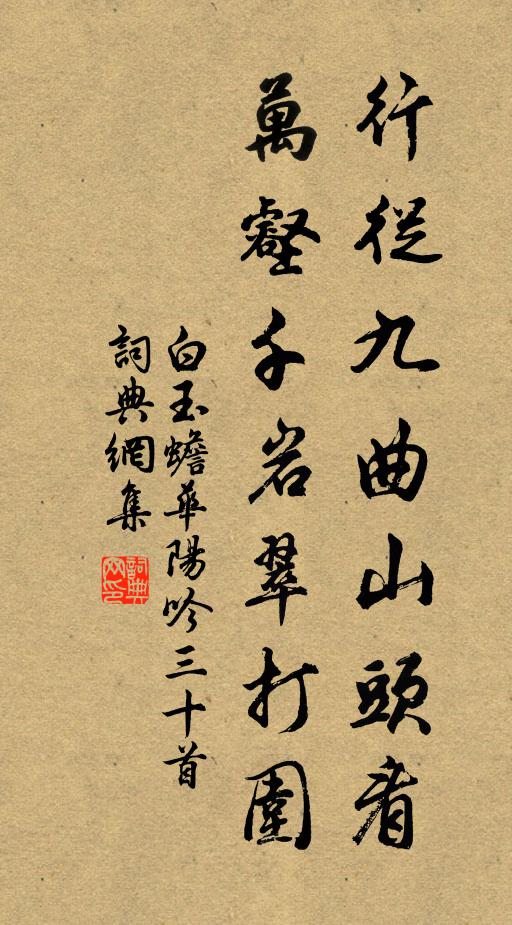 行從九曲山頭看
萬壑千岩翠打圍
白玉蟾華陽吟三十首
詞典網集
詞典網印